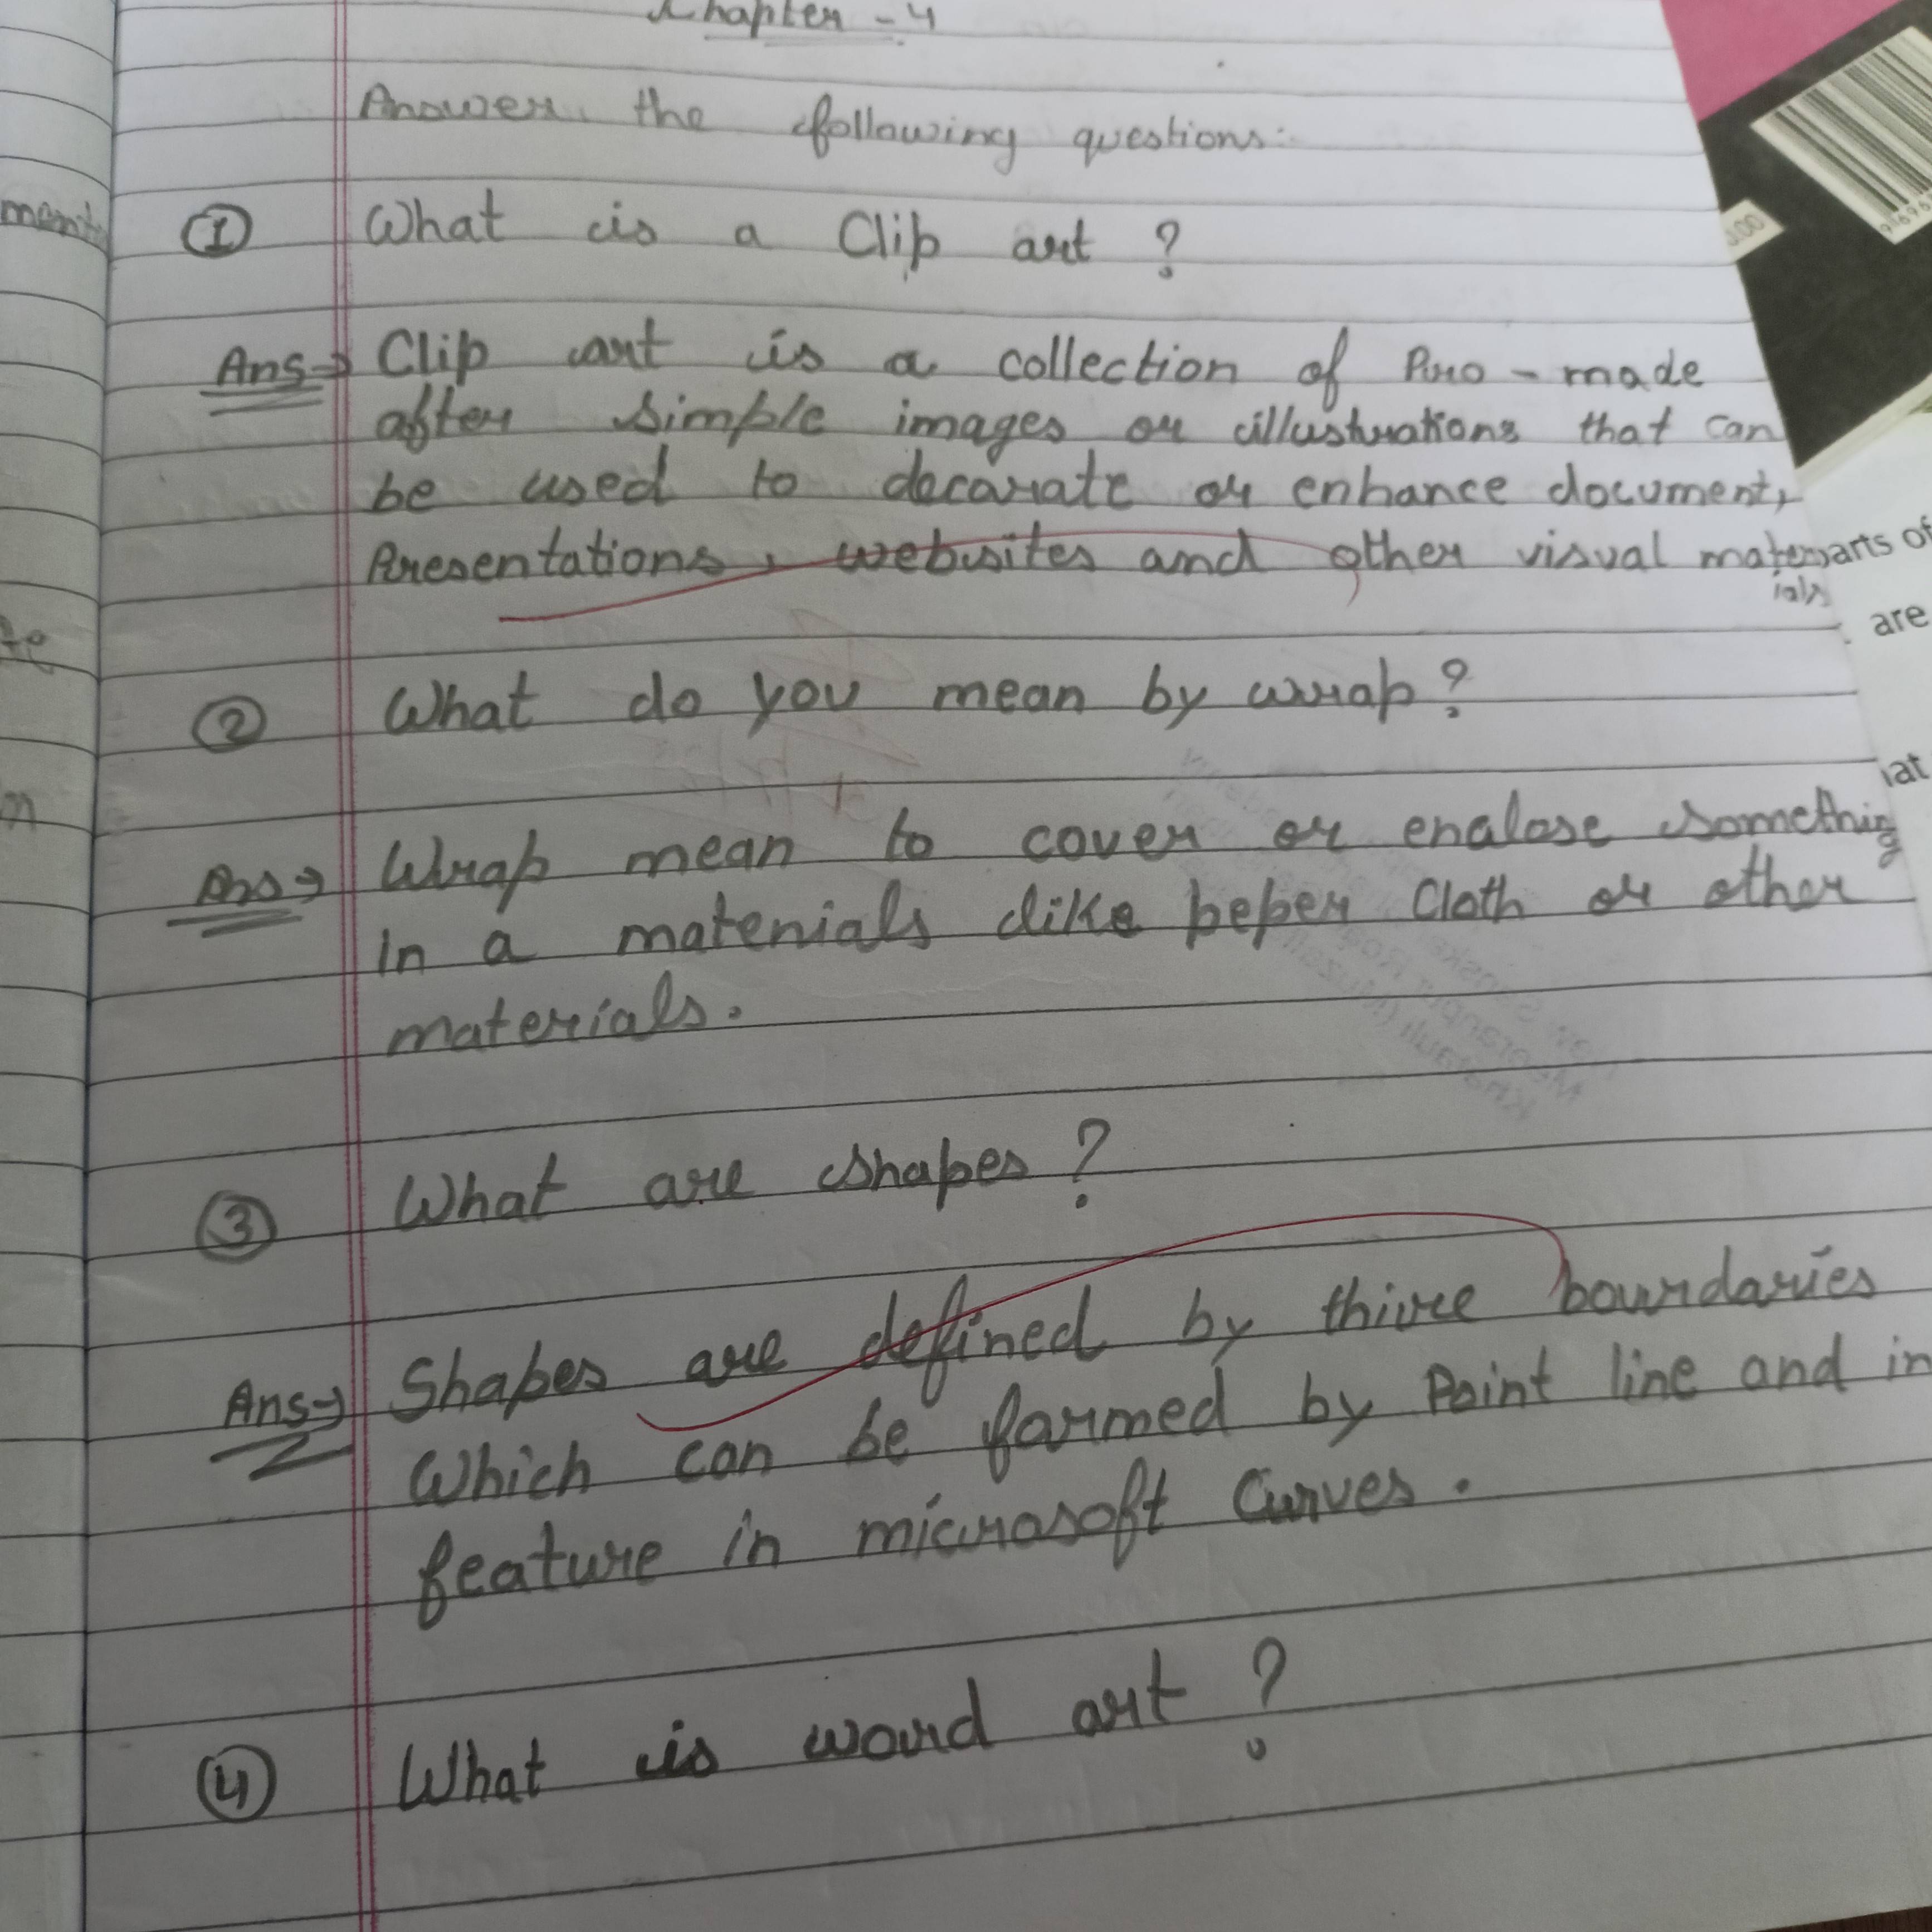 Chapter - 4
Answer the following questions:-
① What is a Clip art ?
Ans→ Clip art is a collection of Pro - made
after simple images or illustrations that can
be used to decarate or enhance document,
Presentations, websites and other visual mater
ials
② What do you mean by wrap?
Ans→ Wrap mean to cover or enalose something
in a matenials like beper Cloth or other
materials.
③ What are shapes ?
Ans→ Shapes are defined by thire boundaries
Which can be farmed by Point line and in
feature in micrasoft Curves.
④ What is word art ?
ment
te
n
.00
arts of
are